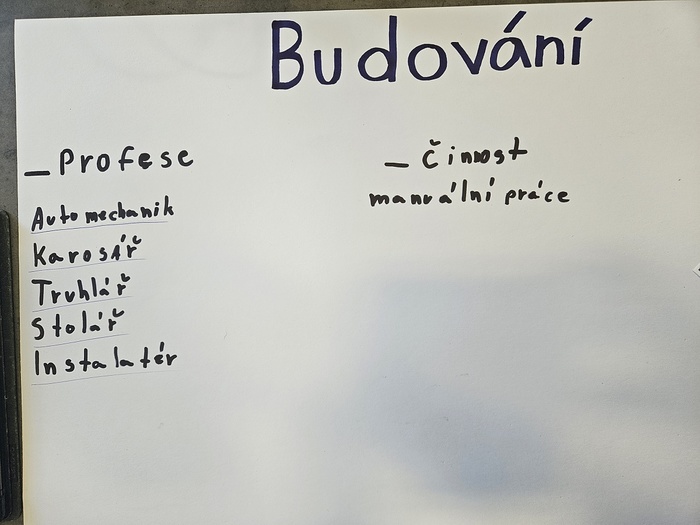 Budování
– Profese
Automechanik
Karosář
Truhlář
Stolář
Instalatér
– Činnost
manuální práce